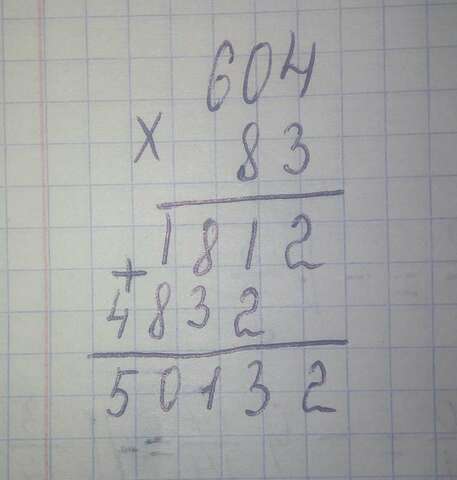 604
× 83
1812
+
4832
50132
=